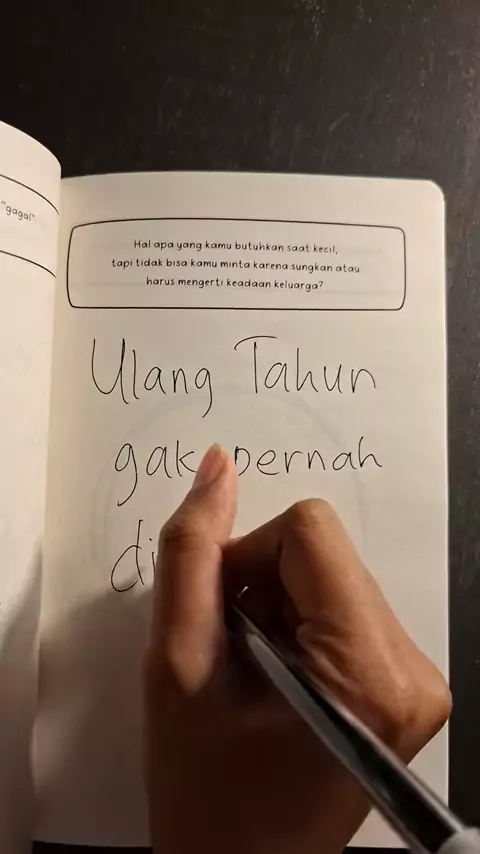 "gagal"
Hal apa yang kamu butuhkan saat kecil,
tapi tidak bisa kamu minta karena sungkan atau
harus mengerti keadaan keluarga?
Ulang Tahun
gak pernah
di